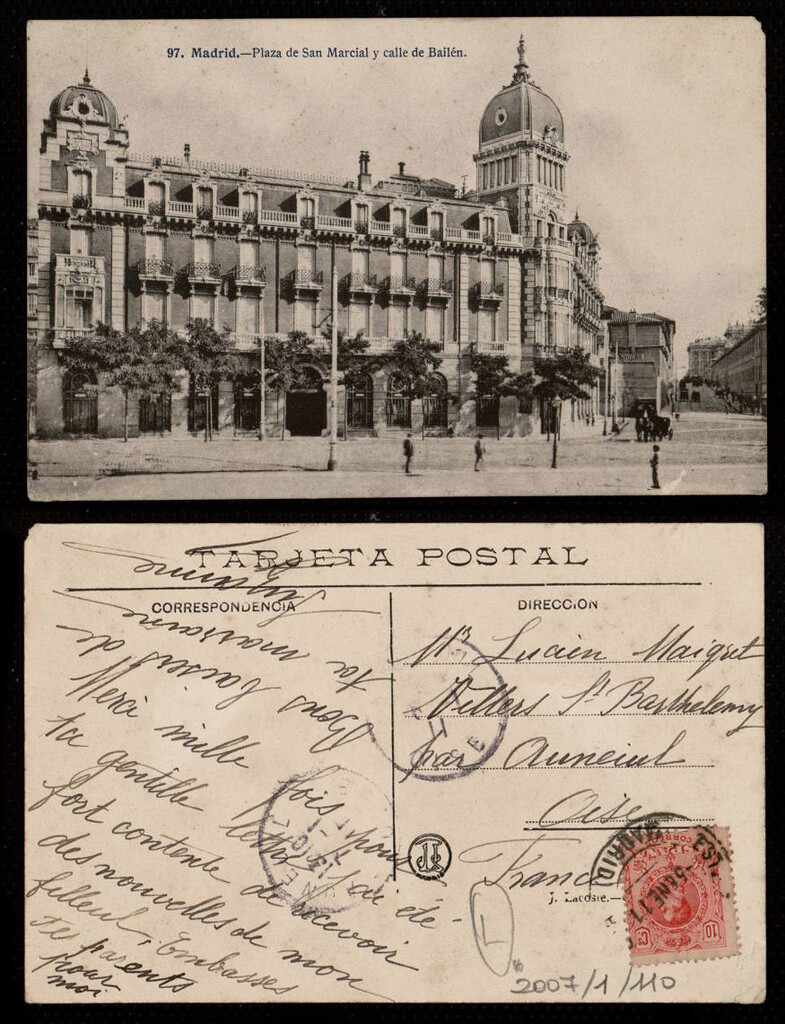 97. Madrid.—Plaza de San Marcial y calle de Bailén.
TARJETA POSTAL
CORRESPONDENCIA
DIRECCION
Merci mille
fois pour
ta gentille lettre j'ai été
fort contente de recevoir
des nouvelles de mon
filleul, Embrasses
tes parents
pour
moi.
Bons baisers de
ta marraine
Mr Lucien Maigret
Villers St Barthelemy
par Auneuil
Oise
France
J. Lacoste.—
MADRID
CORREOS
10 Cs
I
2007/1/110